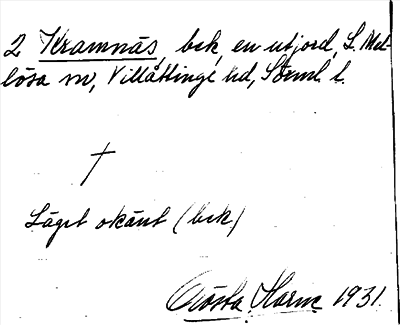 2 Kramnäs, bek, en utjord, L. Mel-
lösa sn, Villåttinge hd, Sörml. l.
†
Läget okänt (bek)
Gösta Harm 1931.